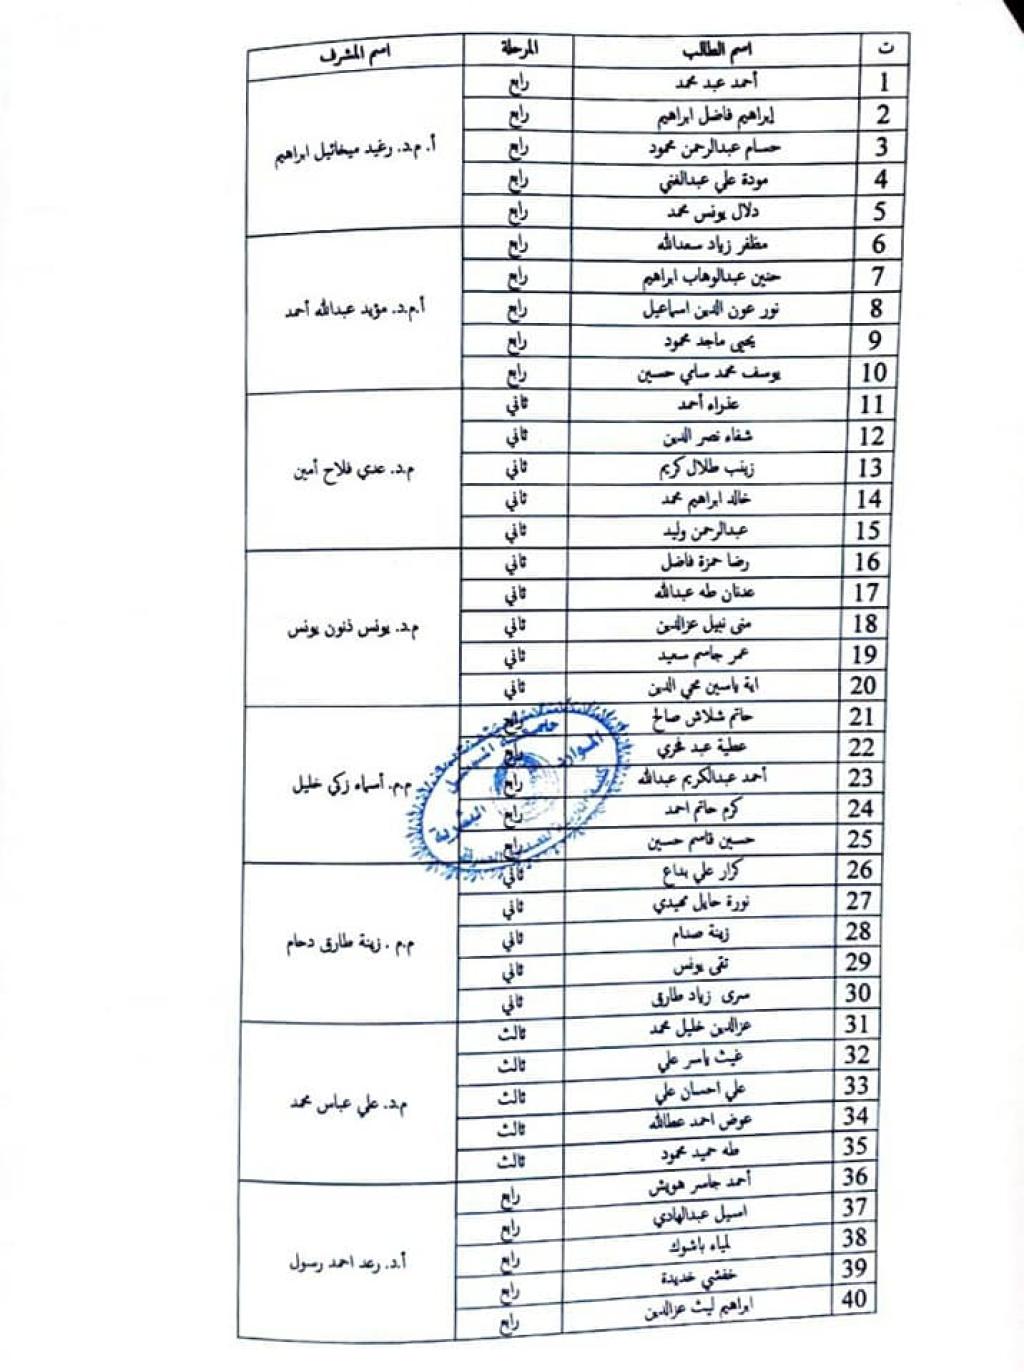 ت اسم الطالب المرحلة اسم المشرف
1 أحمد عبد محمد رابع أ. م.د. رغيد ميخائيل ابراهيم
2 إبراهيم فاضل ابراهيم رابع
3 حسام عبدالرحمن محمود رابع
4 مودة علي عبدالغني رابع
5 دلال يونس محمد رابع
6 مظفر زياد سعدالله رابع أ.م.د. مؤيد عبدالله أحمد
7 حنين عبدالوهاب ابراهيم رابع
8 نور عون الدين اسماعيل رابع
9 يحيى ماجد محمود رابع
10 يوسف محمد سامي حسين رابع
11 عذراء أحمد ثاني م.د. عدي فلاح أمين
12 شفاء نصر الدين ثاني
13 زينب طلال كريم ثاني
14 خالد ابراهيم محمد ثاني
15 عبدالرحمن وليد ثاني
16 رضا حمزة فاضل ثاني م.د. يونس ذنون يونس
17 عدنان طه عبدالله ثاني
18 منى نبيل عزالدين ثاني
19 عمر جاسم سعيد ثاني
20 اية ياسين محي الدين ثاني
21 حاتم شلاش صالح رابع م.م. أسماء زكي خليل
22 عطية عبد فخري رابع
23 أحمد عبدالكريم عبدالله رابع
24 كرم حاتم احمد رابع
25 حسين قاسم حسين رابع
26 كرار علي بداع ثاني م.م . زينة طارق دحام
27 نورة حايل مجيدي ثاني
28 زينة صدام ثاني
29 تقى يونس ثاني
30 سرى زياد طارق ثاني
31 عزالدين خليل محمد ثالث م.د. علي عباس محمد
32 غيث ياسر علي ثالث
33 علي احسان علي ثالث
34 عوض احمد عطالله ثالث
35 طه حميد محمود ثالث
36 أحمد جاسر هويش رابع أ.د. رعد احمد رسول
37 اسيل عبدالهادي رابع
38 لمياء باشوك رابع
39 خفشي خديدة رابع
40 ابراهيم ليث عزالدين رابع
الموارد البشرية